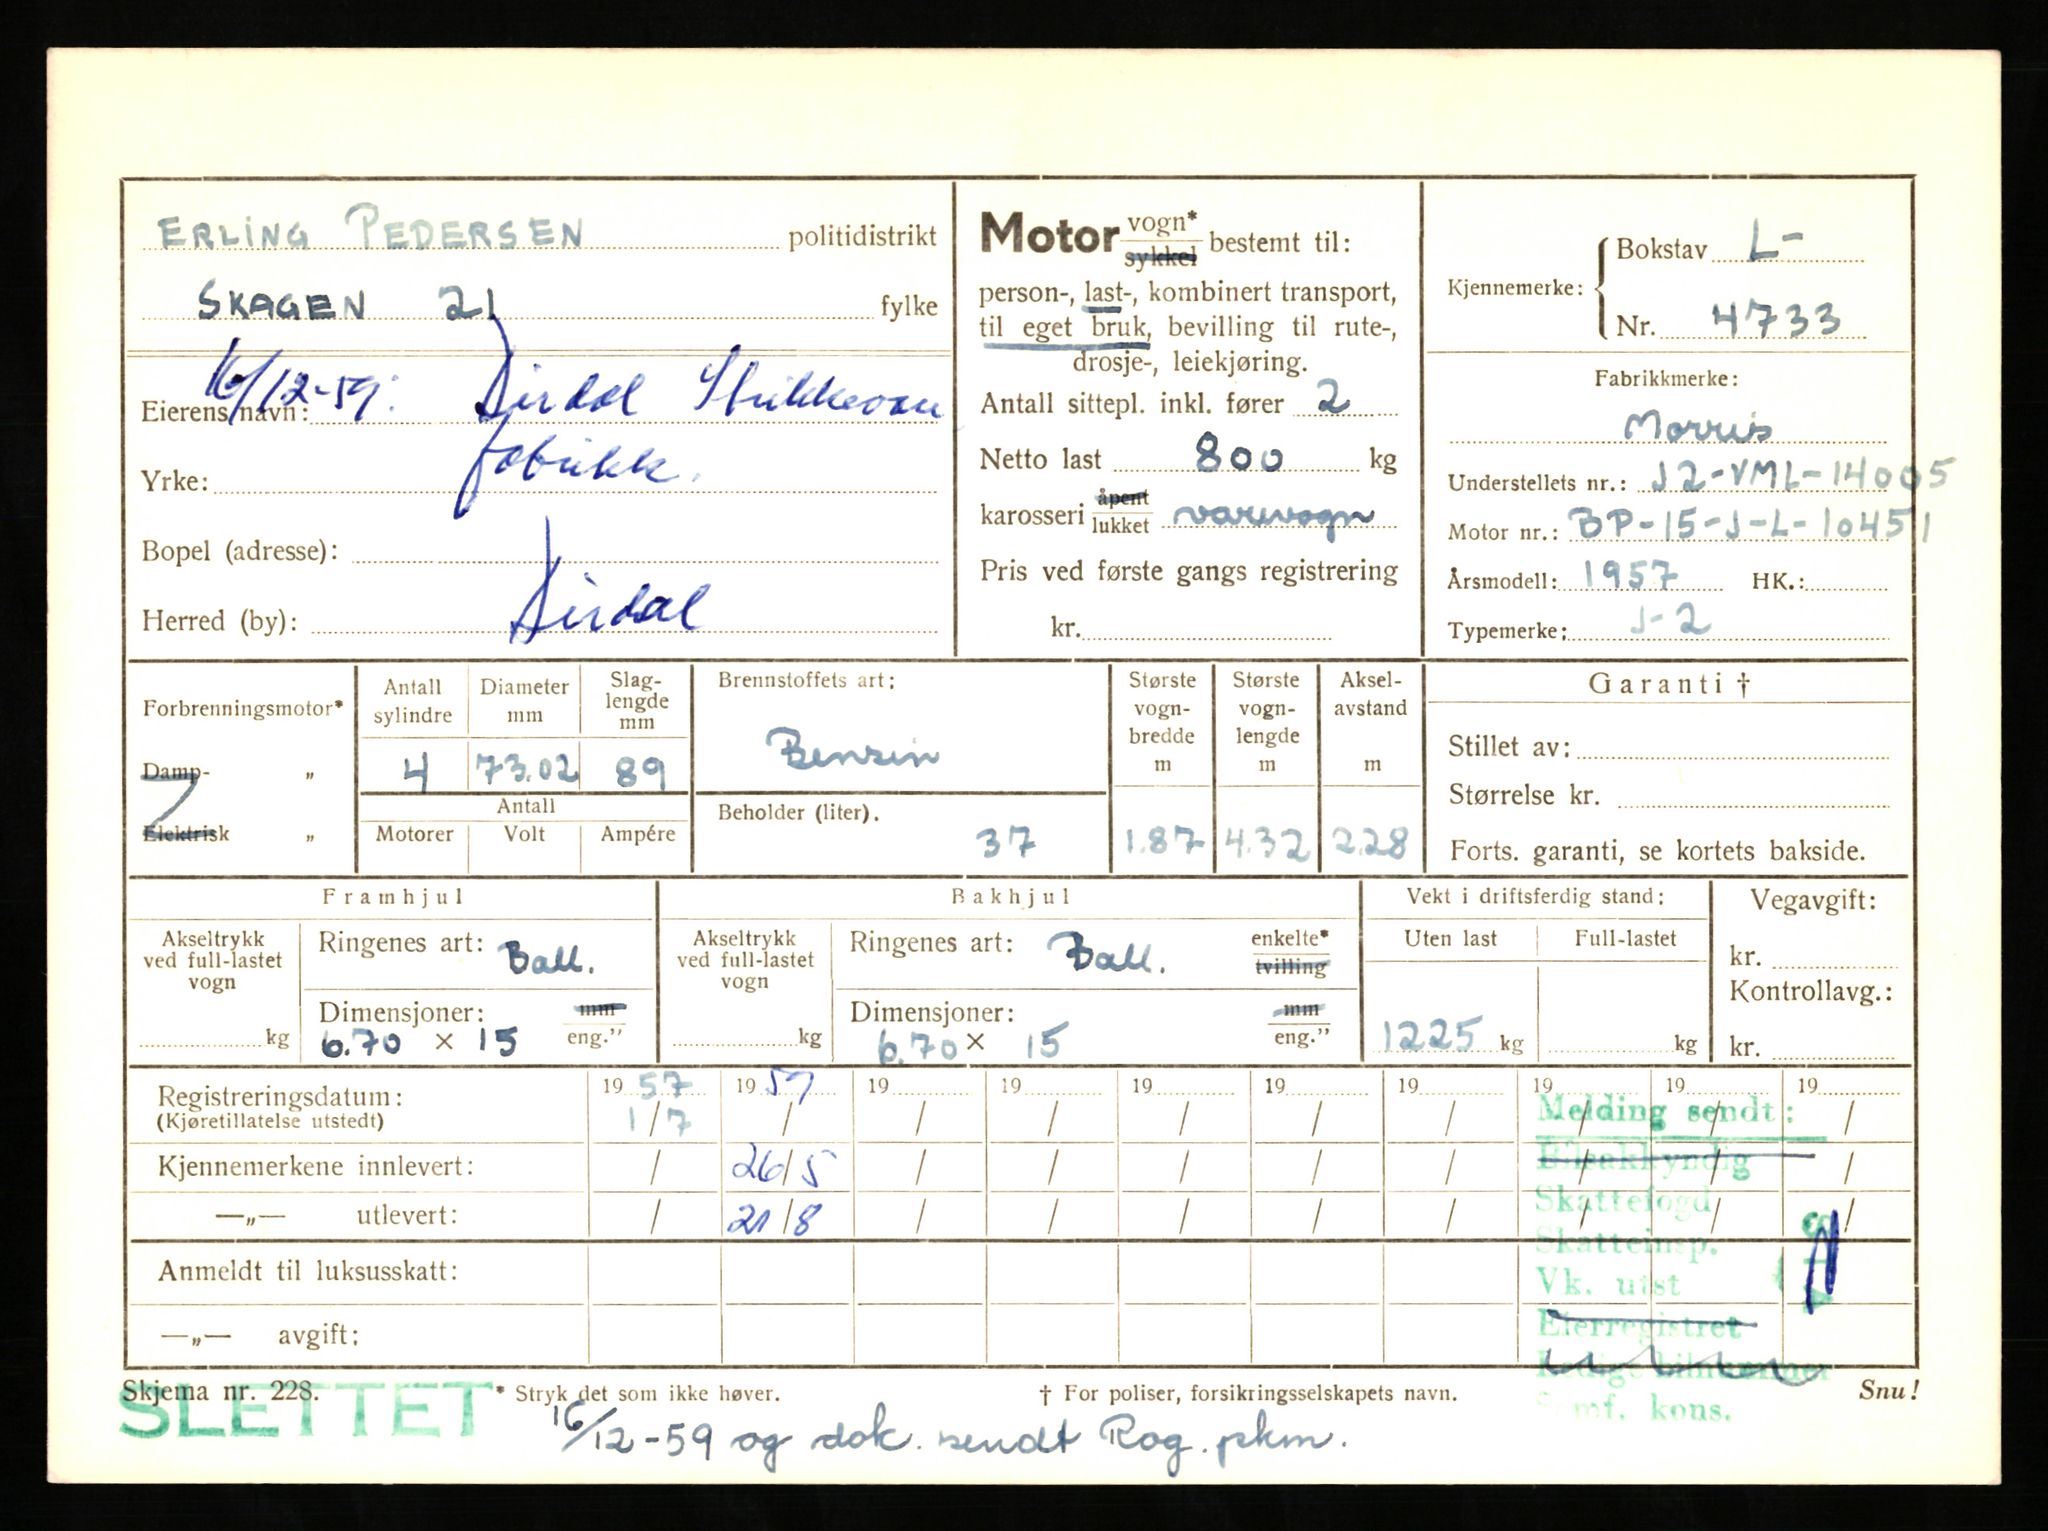 ERLING PEDERSEN politidistrikt
SKAGEN 21 fylke
16/12-59: Dirdal Strikkevare
Eierens navn:
fabrikk.
Yrke:
Bopel (adresse):
Herred (by): Dirdal
Motor vogn* sykkel bestemt til:
person-, last-, kombinert transport,
til eget bruk, bevilling til rute-,
drosje-, leiekjøring.
Antall sittepl. inkl. fører 2
Netto last 800 kg
karosseri åpent lukket varevogn
Pris ved første gangs registrering
kr.
Kjennemerke: Bokstav L-
Nr. 4733
Fabrikkmerke:
Morris
Understellets nr.: J2-VML-14005
Motor nr.: BP-15-J-L-10451
Årsmodell: 1957 HK.:
Typemerke: J-2
Forbrenningsmotor*
Damp- „
Elektrisk „
Antall sylindre 4
Diameter mm 73.02
Slag-lengde mm 89
Antall
Motorer Volt Ampére
Brennstoffets art:
Bensin
Beholder (liter).
37
Største vogn-bredde m 1.87
Største vogn-lengde m 4.32
Aksel-avstand m 2.28
Garanti †
Stillet av:
Størrelse kr.
Forts. garanti, se kortets bakside.
Framhjul
Akseltrykk ved full-lastet vogn
kg
Ringenes art: Ball.
Dimensjoner: mm
6.70 × 15 eng."
Bakhjul
Akseltrykk ved full-lastet vogn
kg
Ringenes art: Ball. enkelte* tvilling
Dimensjoner: mm
6.70 × 15 eng."
Vekt i driftsferdig stand:
Uten last Full-lastet
1225 kg kg
Vegavgift:
kr.
Kontrollavg.:
kr.
Registreringsdatum: 19 57 19 59 19 19 19 19 19 19 19 19
(Kjøretillatelse utstedt) 1/7 / / / / / / / / /
Kjennemerkene innlevert: / 26/5 / / / / / / / /
—„— utlevert: / 21/8 / / / / / / / /
Anmeldt til luksusskatt:
—„— avgift:
Melding sendt:
Bilsakkyndig
Skattefogd
Skatteinsp.
Vk. utst
Eierregistret
Ledige bilnummer
Samf. kons.
Skjema nr. 228.
* Stryk det som ikke høver.
† For poliser, forsikringsselskapets navn.
Snu!
SLETTET
16/12-59 og dok. sendt Rog. pkm.